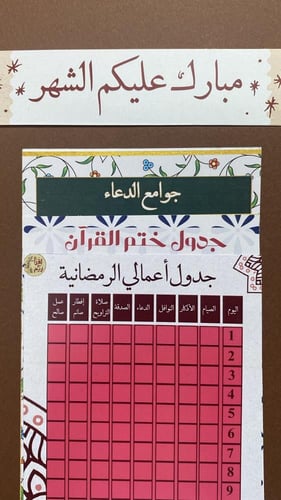 مبارك عليكم الشهر
جوامع الدعاء
جدول ختم القرآن
جدول أعمالي الرمضانية
اليوم الصيام الأذكار النوافل الدعاء الصدقة صلاة التراويح إفطار صائم عمل صالح
1
2
3
4
5
6
7
8
9